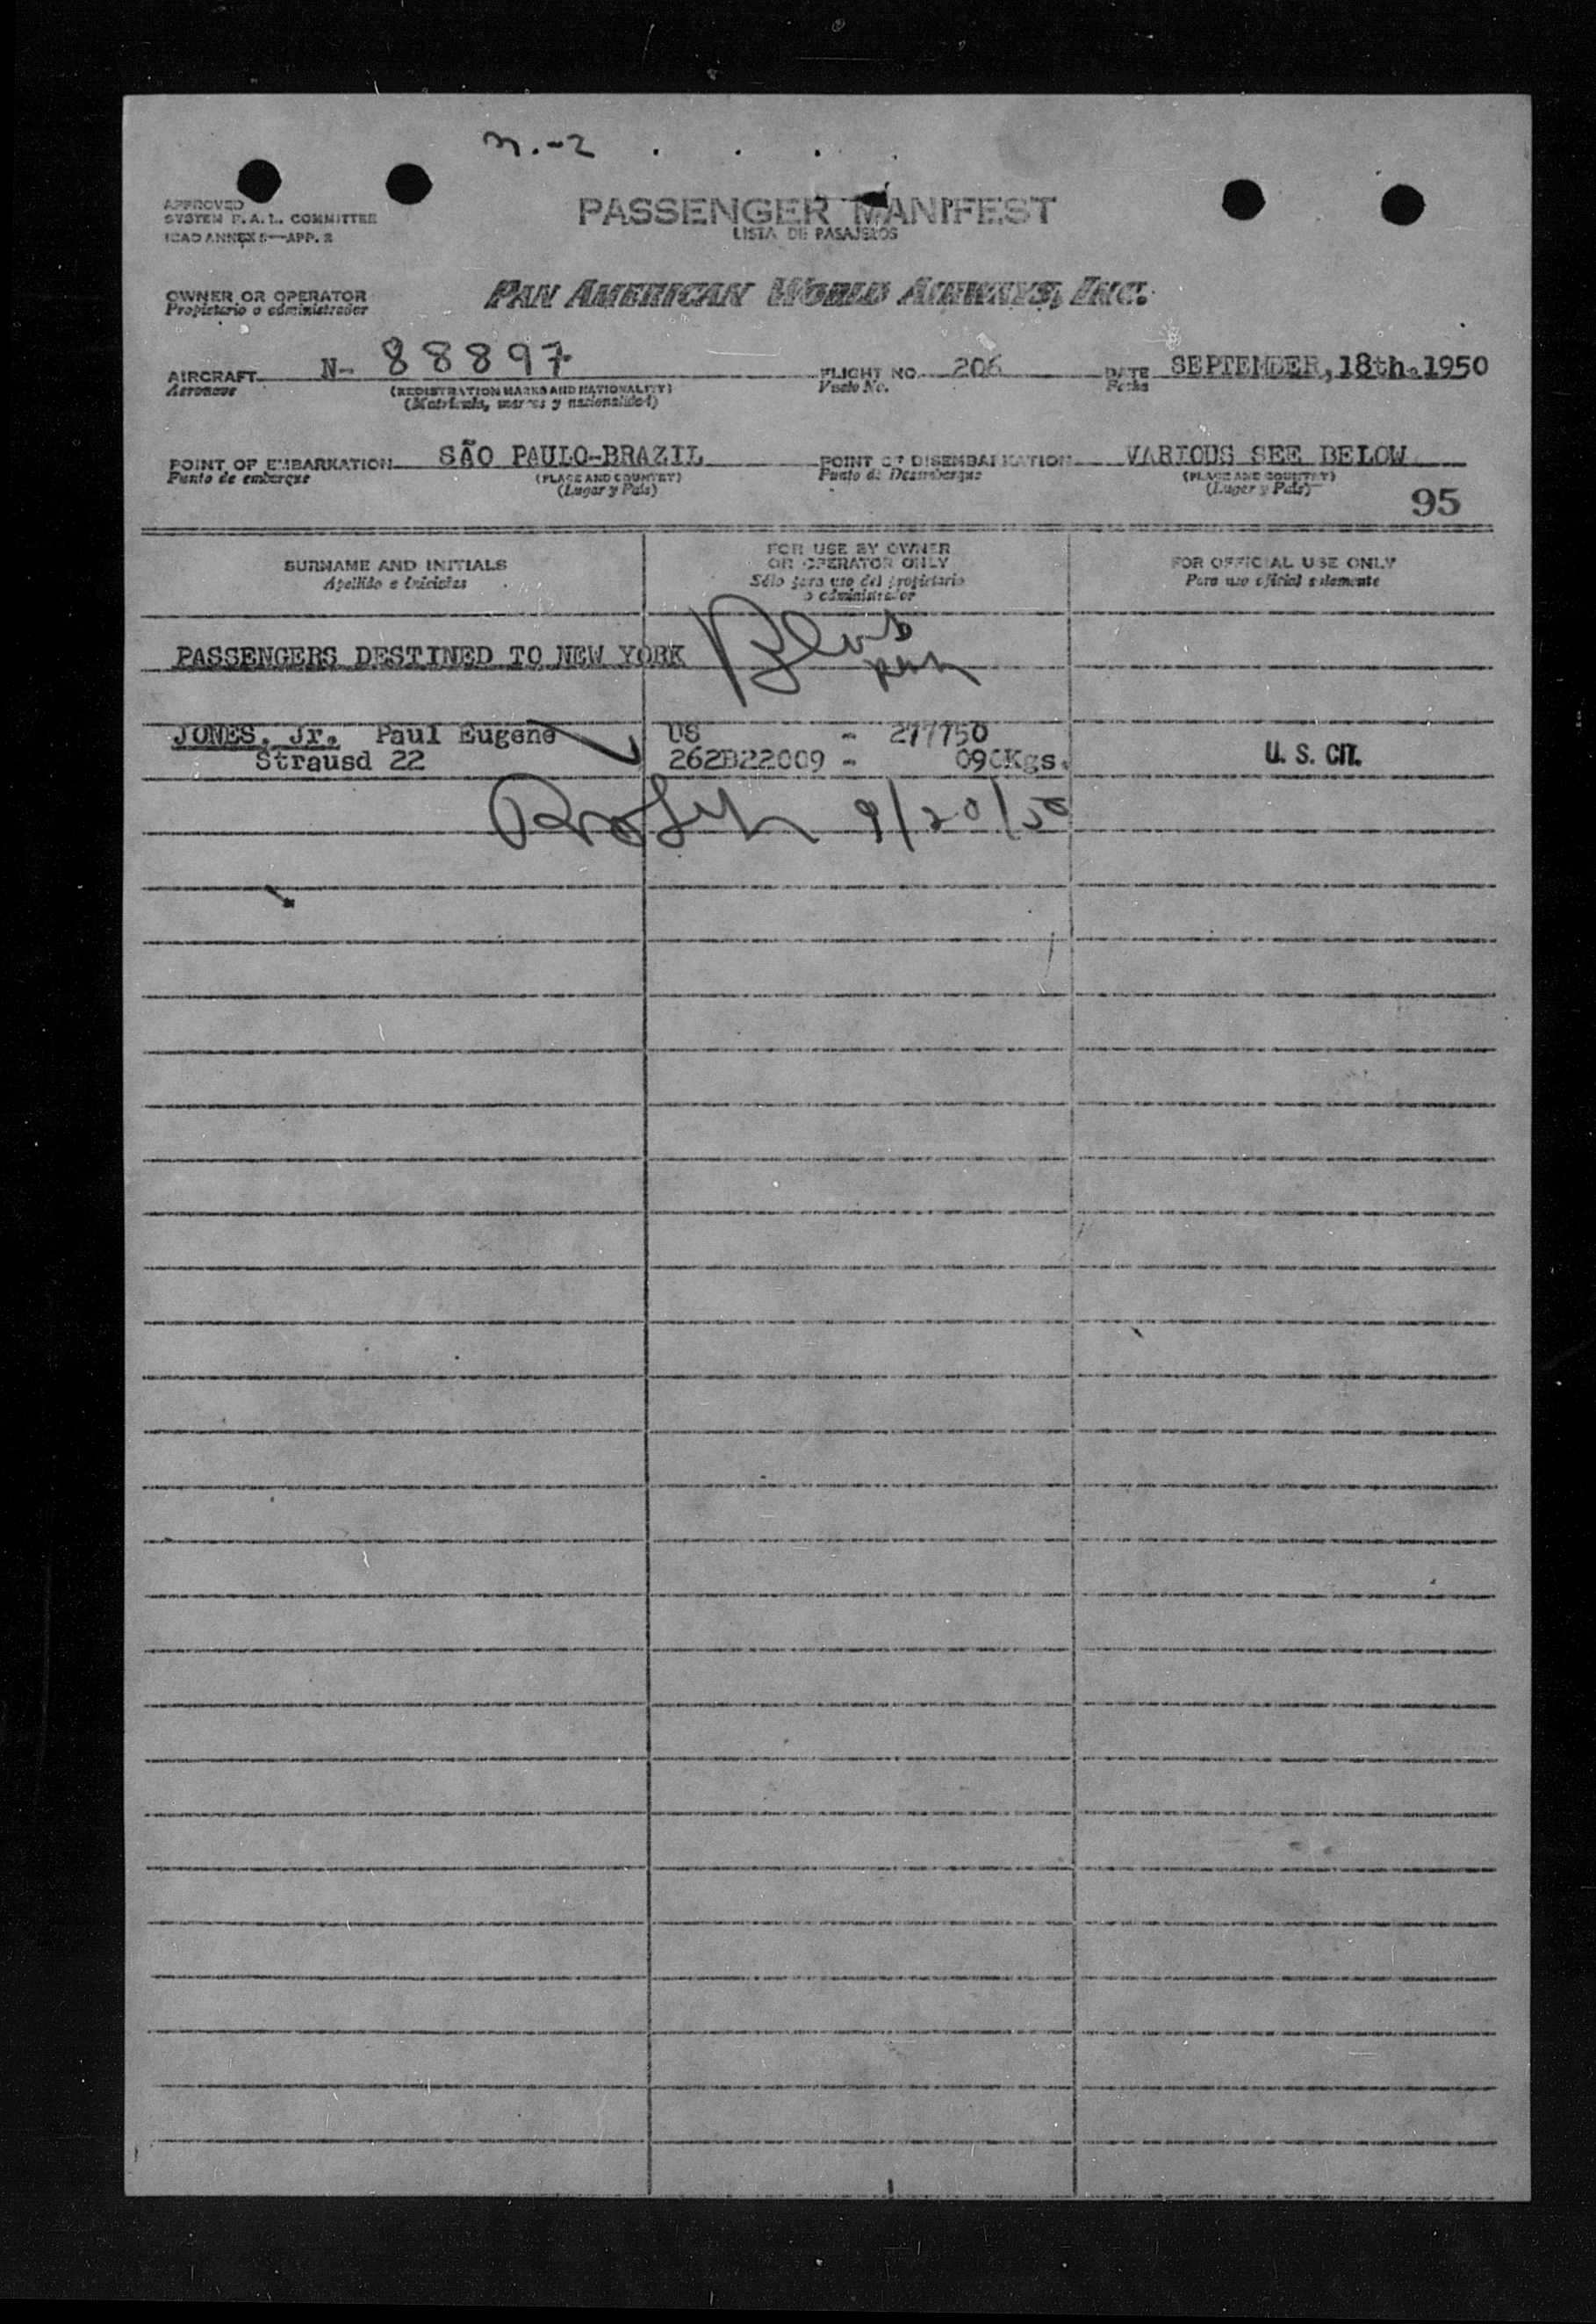 n.-2
APPROVED
SYSTEM F.A.L. COMMITTEE
ICAO ANNEX 9—APP. 2
PASSENGER MANIFEST
LISTA DE PASAJEROS
OWNER OR OPERATOR
Propietario o administrador
PAN AMERICAN WORLD AIRWAYS, INC.
AIRCRAFT N- 88897 FLIGHT NO. 206 DATE SEPTEMBER, 18th.1950
Aeronave (REGISTRATION MARKS AND NATIONALITY) Vuelo No. Fecha
(Matrícula, marcas y nacionalidad)
POINT OF EMBARKATION SÃO PAULO-BRAZIL POINT OF DISEMBARKATION VARIOUS SEE BELOW
Punto de embarque (PLACE AND COUNTRY) Punto de Desembarque (PLACE AND COUNTRY)
(Lugar y País) (Lugar y País)
95
SURNAME AND INITIALS
Apellido e iniciales
FOR USE BY OWNER
OR OPERATOR ONLY
Sólo para uso del propietario
o administrador
FOR OFFICIAL USE ONLY
Para uso oficial solamente
PASSENGERS DESTINED TO NEW YORK
JONES, Jr. Paul Eugene US - 277750
Strausd 22 262B22009 - 090Kgs. U. S. CIT.
9/20/50